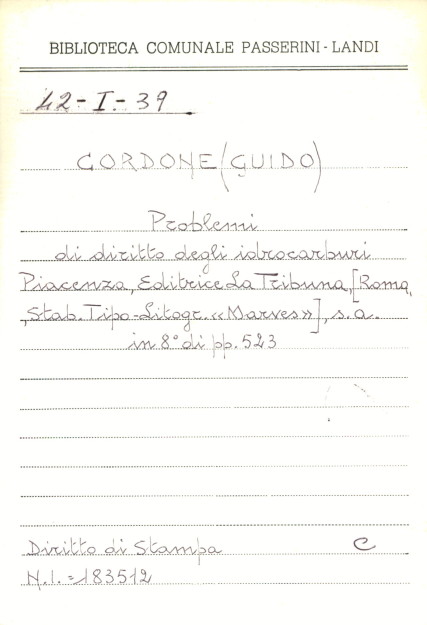 BIBLIOTECA COMUNALE PASSERINI - LANDI
42-I-39
CORDONE (GUIDO)
Problemi
di diritto degli idrocarburi
Piacenza, Editrice La Tribuna, [Roma,
Stab. Tipo-Litogr. «Marves»], s.a.
in 8° di pp. 523
Diritto di Stampa C
N.I. = 183512